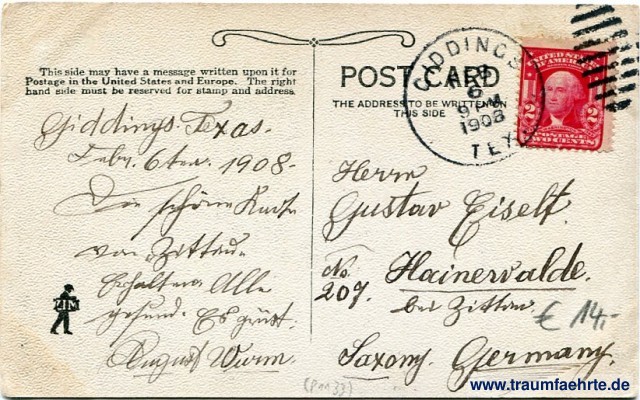 This side may have a message written upon it for
Postage in the United States and Europe. The right
hand side must be reserved for stamp and address.
POST CARD
THE ADDRESS TO BE WRITTEN ON
THIS SIDE
GIDDINGS
FEB
6
9 AM
1908
TEX
UNITED STATES
OF AMERICA
2 2
POSTAGE
TWO CENTS
Giddings. Texas.
Febr. 6ten 1908.
Die schöne Karte
von Zittau.
Erhalten. Alle
gesund. Es grüst.
August Wurm.
Herrn
Gustav Eiselt.
No.
207.
Hainewalde.
bei Zittau
Saxony. Germany.
€ 14,-
www.traumfaehrte.de